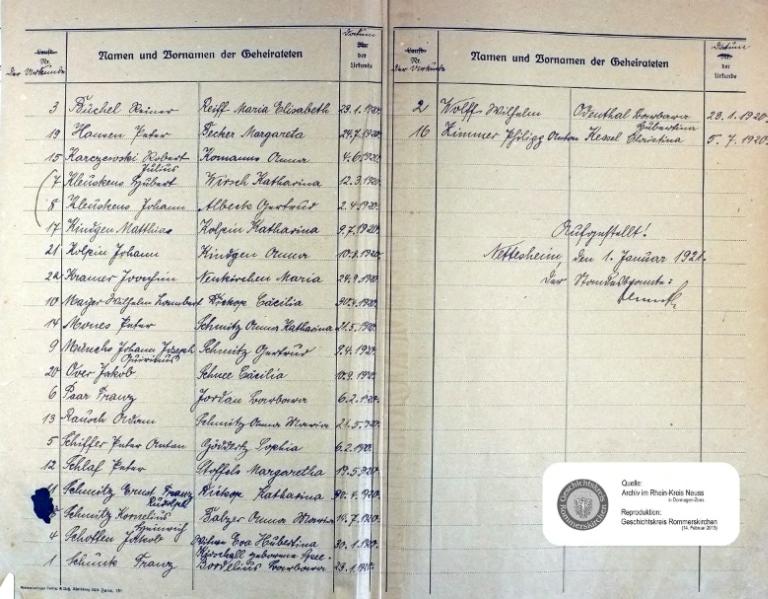 Nr. der Urkunde Namen und Vornamen der Geheirateten Datum der Urkunde
3 Büchel Reiner Reiff Maria Elisabeth 29.1.1920.
19 Hansen Peter Decker Margareta 24.7.1920.
15 Karczewski Robert Komanns Anna 4.6.1920.
Julius
7 Kleuskens Hubert Wirsch Katharina 12.3.1920.
8 Kleuskens Johann Albeck Gertrud 2.4.1920.
17 Kindgen Matthias Kolpin Katharina 9.7.1920.
21 Kolpin Johann Kindgen Anna
Kramer Joachim Neukirchen Maria 24.9.1920.
10 Wilhelm Lambert Cäcilia 20.4.1920.
14 Mones Peter Schmitz Anna Katharina 21.5.1920.
9 Johann Joseph Schmitz Gertrud 9.4.1920.
Quirinus
20 Over Jakob Schnee Cäcilia 10.9.1920.
6 Paar Franz Jordan Barbara 6.2.1920.
13 Rausch Adam Schmitz Anna Maria 21.5.1920.
5 Schiffer Peter Anton Göddertz Sophia 6.2.1920.
12 Schlaf Peter Stoffels Margaretha 19.5.1920.
11 Schmitz Ernst Franz Katharina 30.4.1920.
Rudolph
Schmitz Kornelius Balzer Anna Maria 14.7.1920.
Heinrich
4 Schotten Jakob Witwe Eva Hubertina 30.1.1920.
geborene
1 Schunk Franz Bordelius Barbara 23.1.1920.
Nr. der Urkunde Namen und Vornamen der Geheirateten Datum der Urkunde
2 Wolff Wilhelm Odenthal Barbara 29.1.1920.
Hubertina
16 Zimmer Philipp Anton Kessel Christina 5.7.1920.
Aufgestellt!
Nettesheim den 1. Januar 1921.
Der Standesbeamte:
Quelle:
Archiv im Rhein-Kreis Neuss
in Dormagen-Zons
Reproduktion:
Geschichtskreis Rommerskirchen
(14. Februar 2015)
Geschichtskreis Rommerskirchen